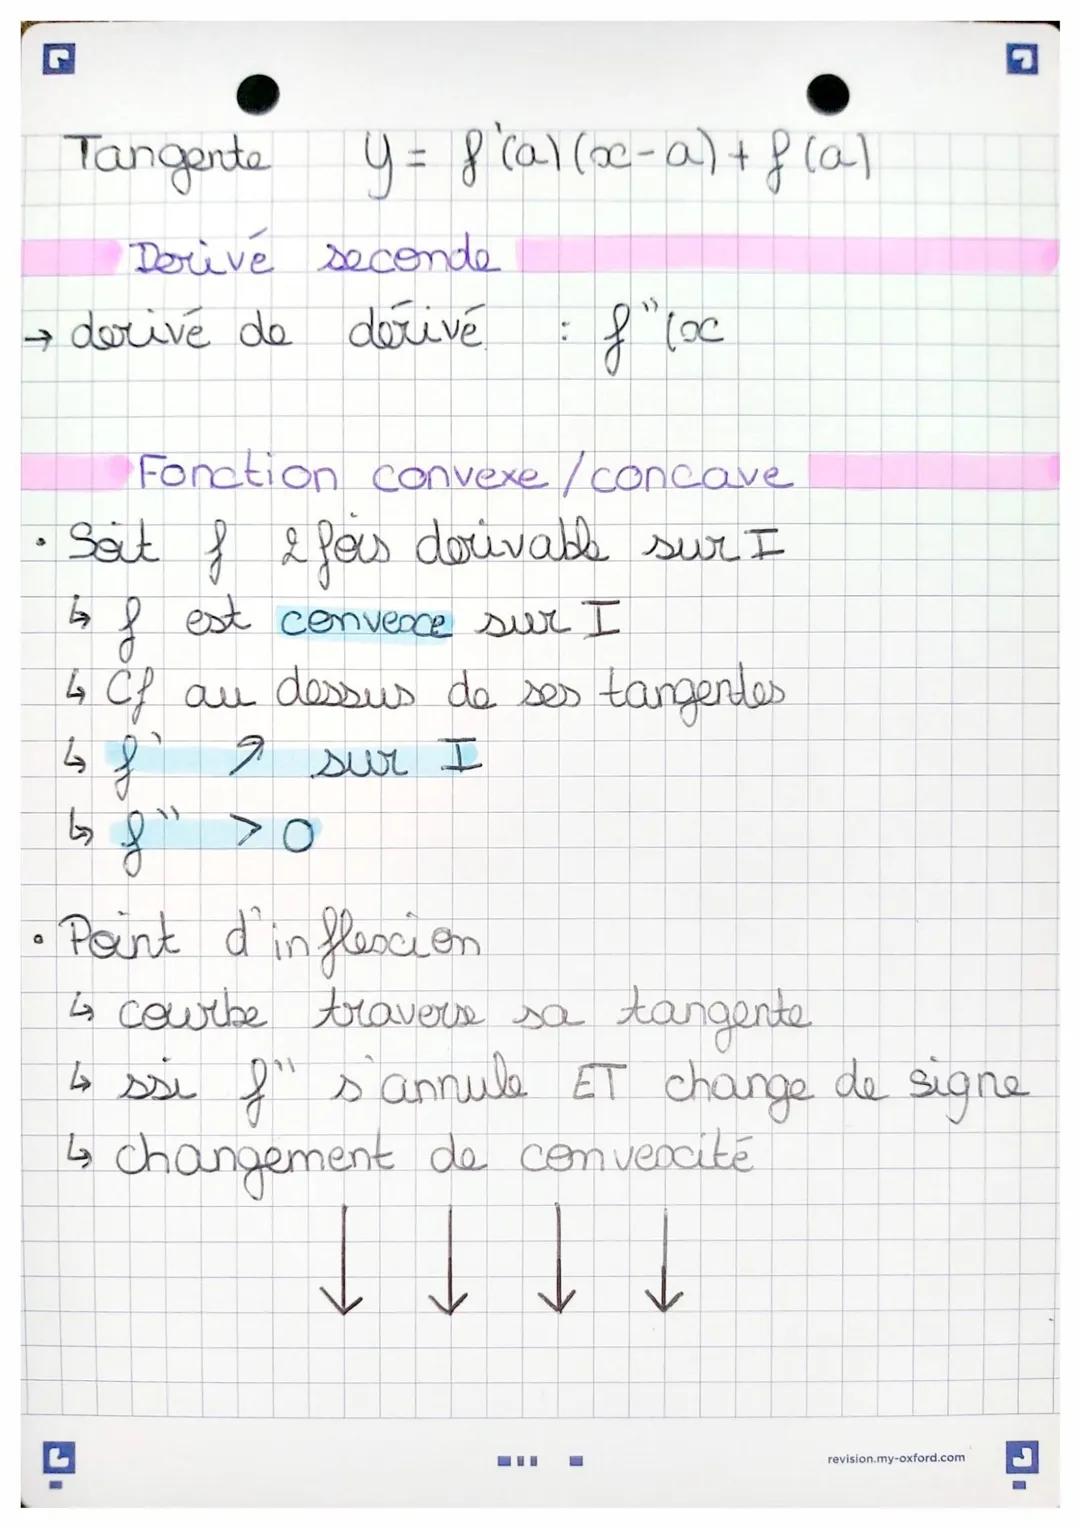 Tangente y = f'(a)(x-a) + f(a)
Derivé seconde
→ derivé de dérivé : f"(x
Fonction convexe / concave
• Soit f 2 fois derivable sur I
↳ f est convexe sur I
↳ Cf au dessus de ses tangentes
↳ f' ↗ sur I
↳ f" > 0
• Point d'inflexion
↳ courbe traverse sa tangente
↳ ssi f" s'annule ET change de signe
↳ changement de convexité
↓ ↓ ↓ ↓
revision.my-oxford.com